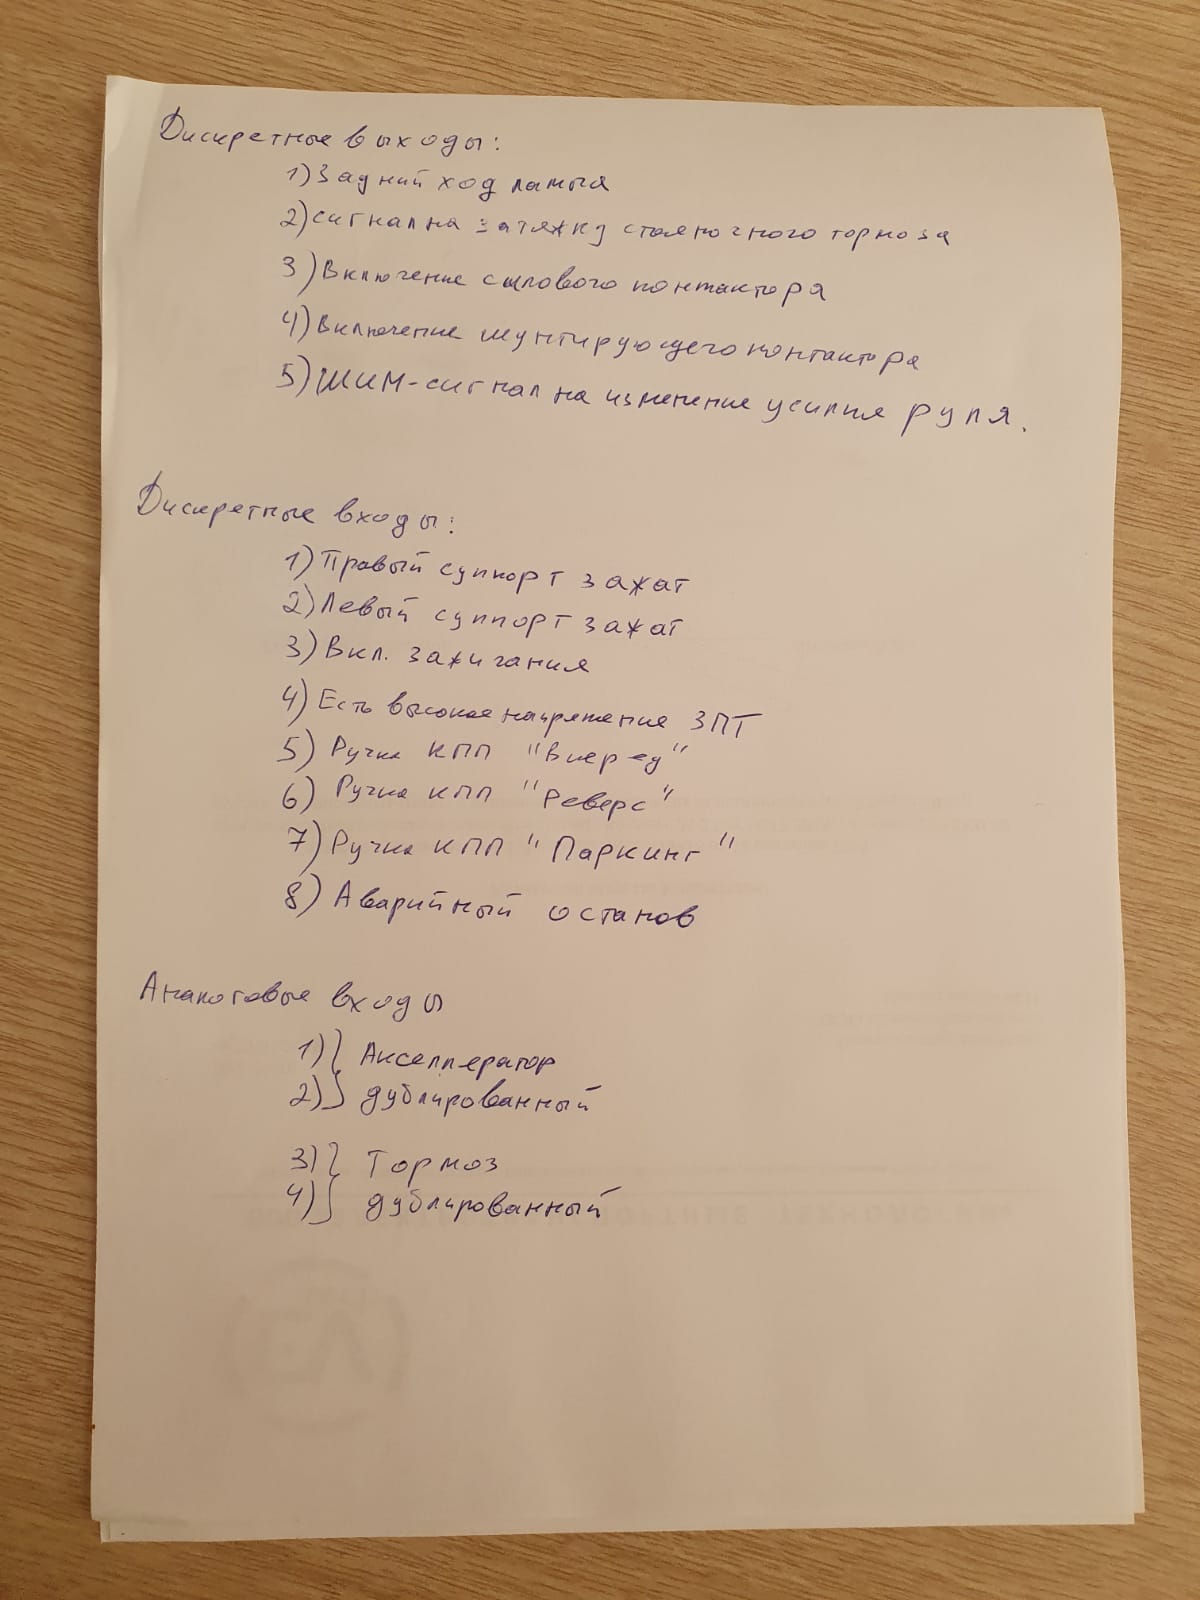 Дискретные выходы:
1) Задний ход лампа
2) сигнал на затяжку стояночного тормоза
3) Включение силового контактора
4) Включение шунтирующего контактора
5) ШИМ-сигнал на изменение усилия руля.
Дискретные входы:
1) Правый суппорт зажат
2) Левый суппорт зажат
3) Вкл. зажигания
4) Есть высокое напряжение ЗПТ
5) Ручка КПП "Вперед"
6) Ручка КПП "Реверс"
7) Ручка КПП "Паркинг"
8) Аварийный останов
Аналоговые входы
1) } Акселлератор
2) } дублированный
3) } Тормоз
4) } дублированный